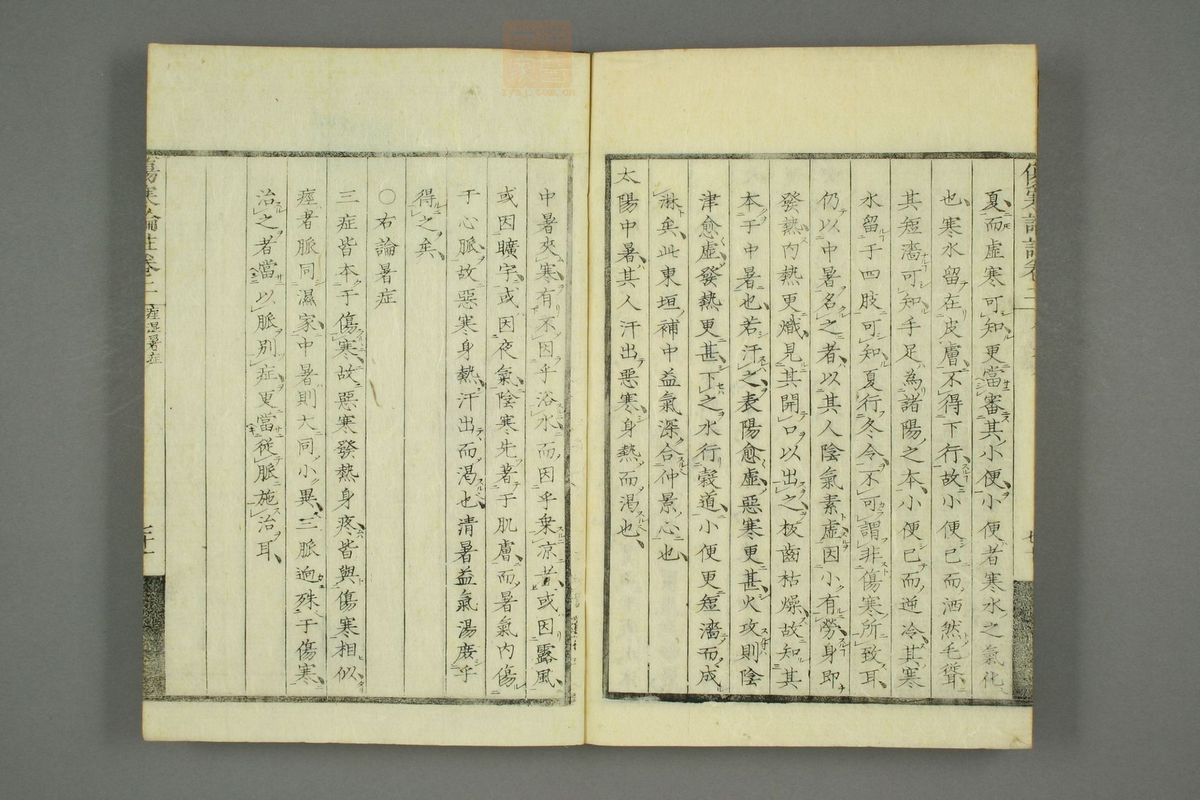 夏而虛寒可知更當審其小便小便者寒水之氣化
也寒水留在皮膚不得下行故小便已而洒然毛聳
其短濇可知手足為諸陽之本小便已而逆冷其寒
水留于四肢可知夏行冬令不可謂非傷寒所致耳
仍以中暑名之者以其人陰氣素虛因小有勞身即
發熱內熱更熾見其開口以出之板齒枯燥故知其
本于中暑也若汗之表陽愈虛惡寒更甚火攻則陰
津愈虛發熱更甚下之水行穀道小便更短濇而成
淋矣此東垣補中益氣深合仲景心也
太陽中暑其人汗出惡寒身熱而渴也
中暑夾寒有不因乎浴水而因乎乘凉者或因露風
或因曠宇或因夜氣陰寒先著于肌膚而暑氣內傷
于心脈故惡寒身熱汗出而渴也清暑益氣湯庶乎
得之矣
〇右論暑症
三症皆本于傷寒故惡寒發熱身疼皆與傷寒相似
痙者脈同濕家中暑則大同小異三脈逈殊于傷寒
治之者當以脈別症更當從脈施治耳
傷寒論註卷二 痙濕暑症